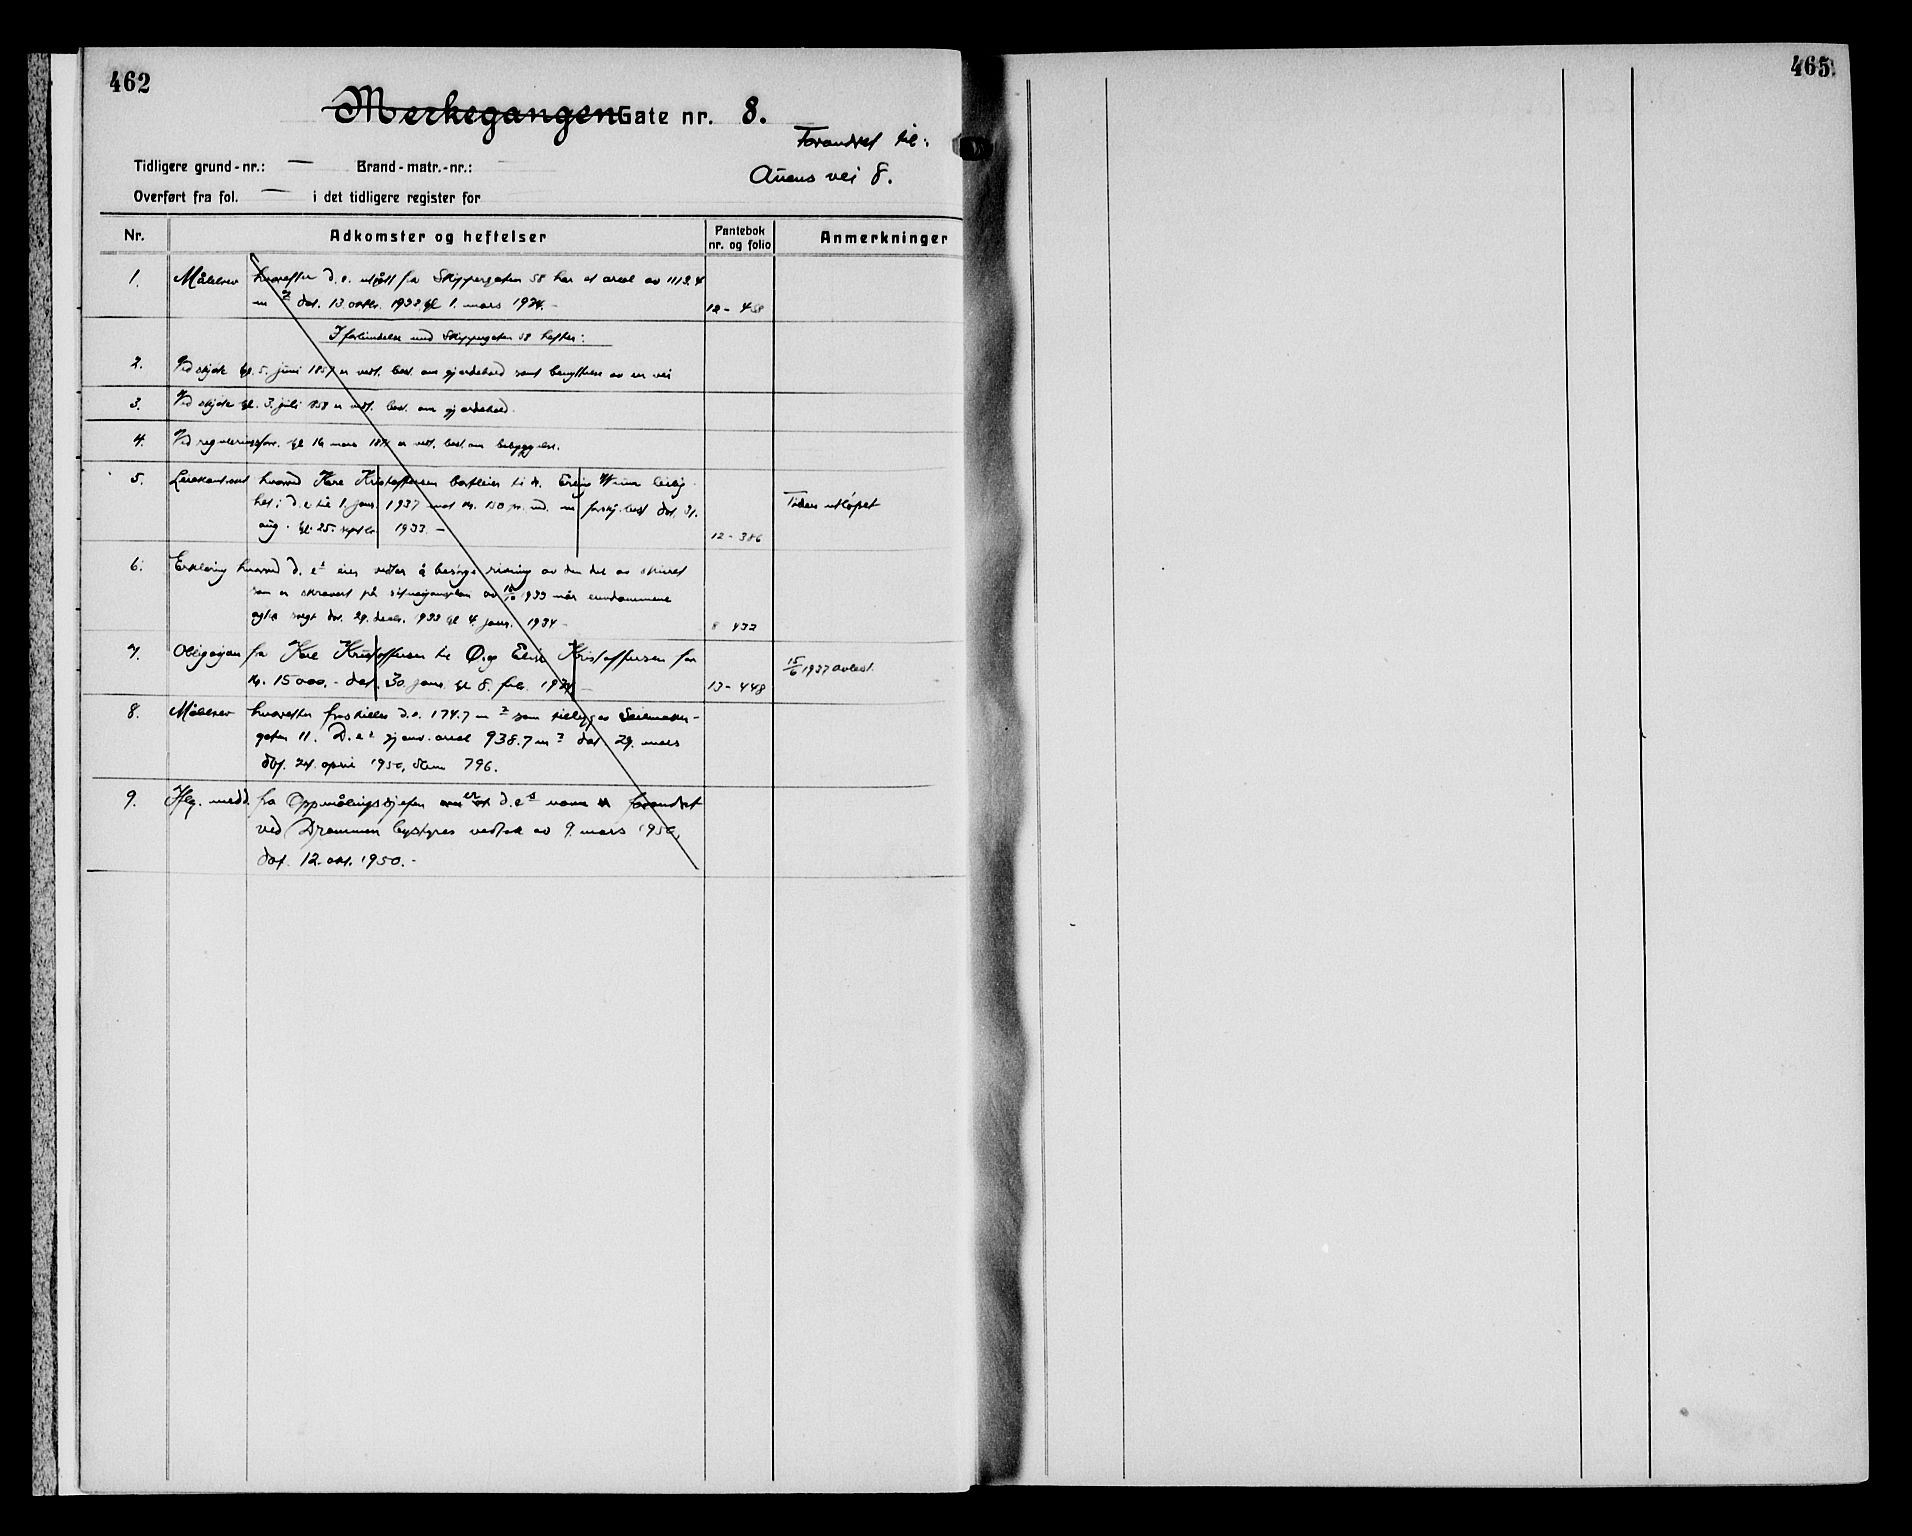 462
Merkegangen Gate nr. 8.
Forandret til:
Tidligere grund-nr.: — Brand-matr.-nr.:
Auens vei 8.
Overført fra fol. — i det tidligere register for
Nr. Adkomster og heftelser Pantebok nr. og folio Anmerkninger
1. Målebrev hvorefter d.e. utskilt fra Skippergaten 58 har et areal av 1113.4
m2 dat. 13 oktbr. 1933 gl 1. mars 1934. – 12 - 458
I forbindelse med Skippergaten 58 hefter:
2. Ved skjøte gl. 5. juni 1857 er vedt. best. om gjerdehold samt benyttelse av en vei
3. Ved skjøte gl. 3. juli 1858 er vedt. best. om gjerdehold.
4. Ved reguleringsforr. gl 16 mars 1871 er vedt. best. om bebyggelse.
5. Leiekontrakt hvorved Kare Kristoffersen bortleier til A. Wium leilig-
het i d.e. til 1. jan. 1937 mot kr. 150 pr. md. m forskj. best dat. 31. Tiden utløpet
aug. gl. 25. septbr. 1933. – 12 - 386
6. Erklæring hvorved d.es eier vedtar å besørge rivning av den del av skuret
som er skravert på situasjonsplan av 1933 når eiendommene
dat. 29. decbr. 1933 gl 4. janr. 1934 – 8 432
7. Obligasjon fra Kare Kristoffersen til Ø. og Elise Kristoffersen for 15/6 1937 avlest.
kr. 15000.- dat. 30. janr. gl 8. feb. 1934 – 13 - 448
8. Målebrev hvorefter fraskilles d.e. 174.7 m2 som tillegges Seilmaker-
gaten 11. D.es gjenv. areal 938.7 m2 dat. 29. mars
dbf. 24. april 1950, 796.
9. Iflg. medd. fra Oppmålingssjefen er d.es navn forandret
ved Drammen bystyres vedtak av 9. mars 1950,
dat. 12. okt. 1950. -
465